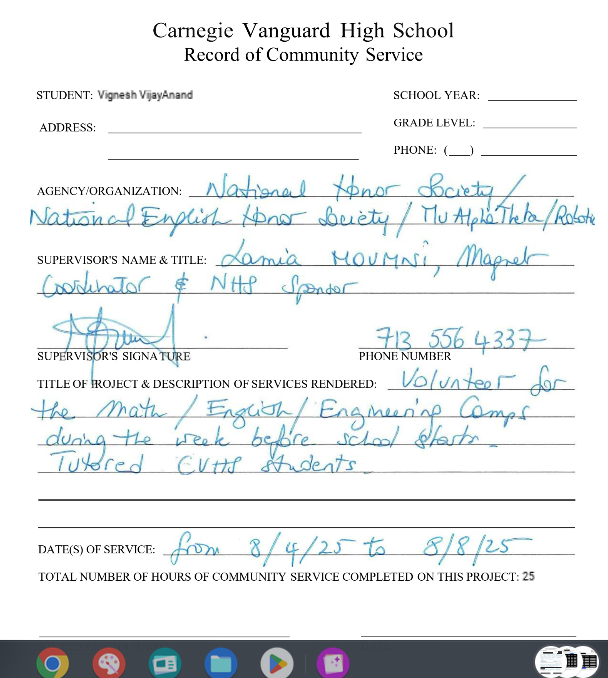 Carnegie Vanguard High School
Record of Community Service
STUDENT: Vignesh VijayAnand
SCHOOL YEAR:
ADDRESS:
GRADE LEVEL:
PHONE: (   )
AGENCY/ORGANIZATION: National Honor Society/
National English Honor Society/Mu Alpha Theta/Robotic
SUPERVISOR'S NAME & TITLE: Lamia MOUMNI, Magnet
Coordinator & NHS Sponsor
713 556 4337
SUPERVISOR'S SIGNATURE
PHONE NUMBER
TITLE OF PROJECT & DESCRIPTION OF SERVICES RENDERED: Volunteer for
the Math/English/Engineering Camps
during the week before school starts.
Tutored CVHS students
DATE(S) OF SERVICE: from 8/4/25 to 8/8/25
TOTAL NUMBER OF HOURS OF COMMUNITY SERVICE COMPLETED ON THIS PROJECT: 25